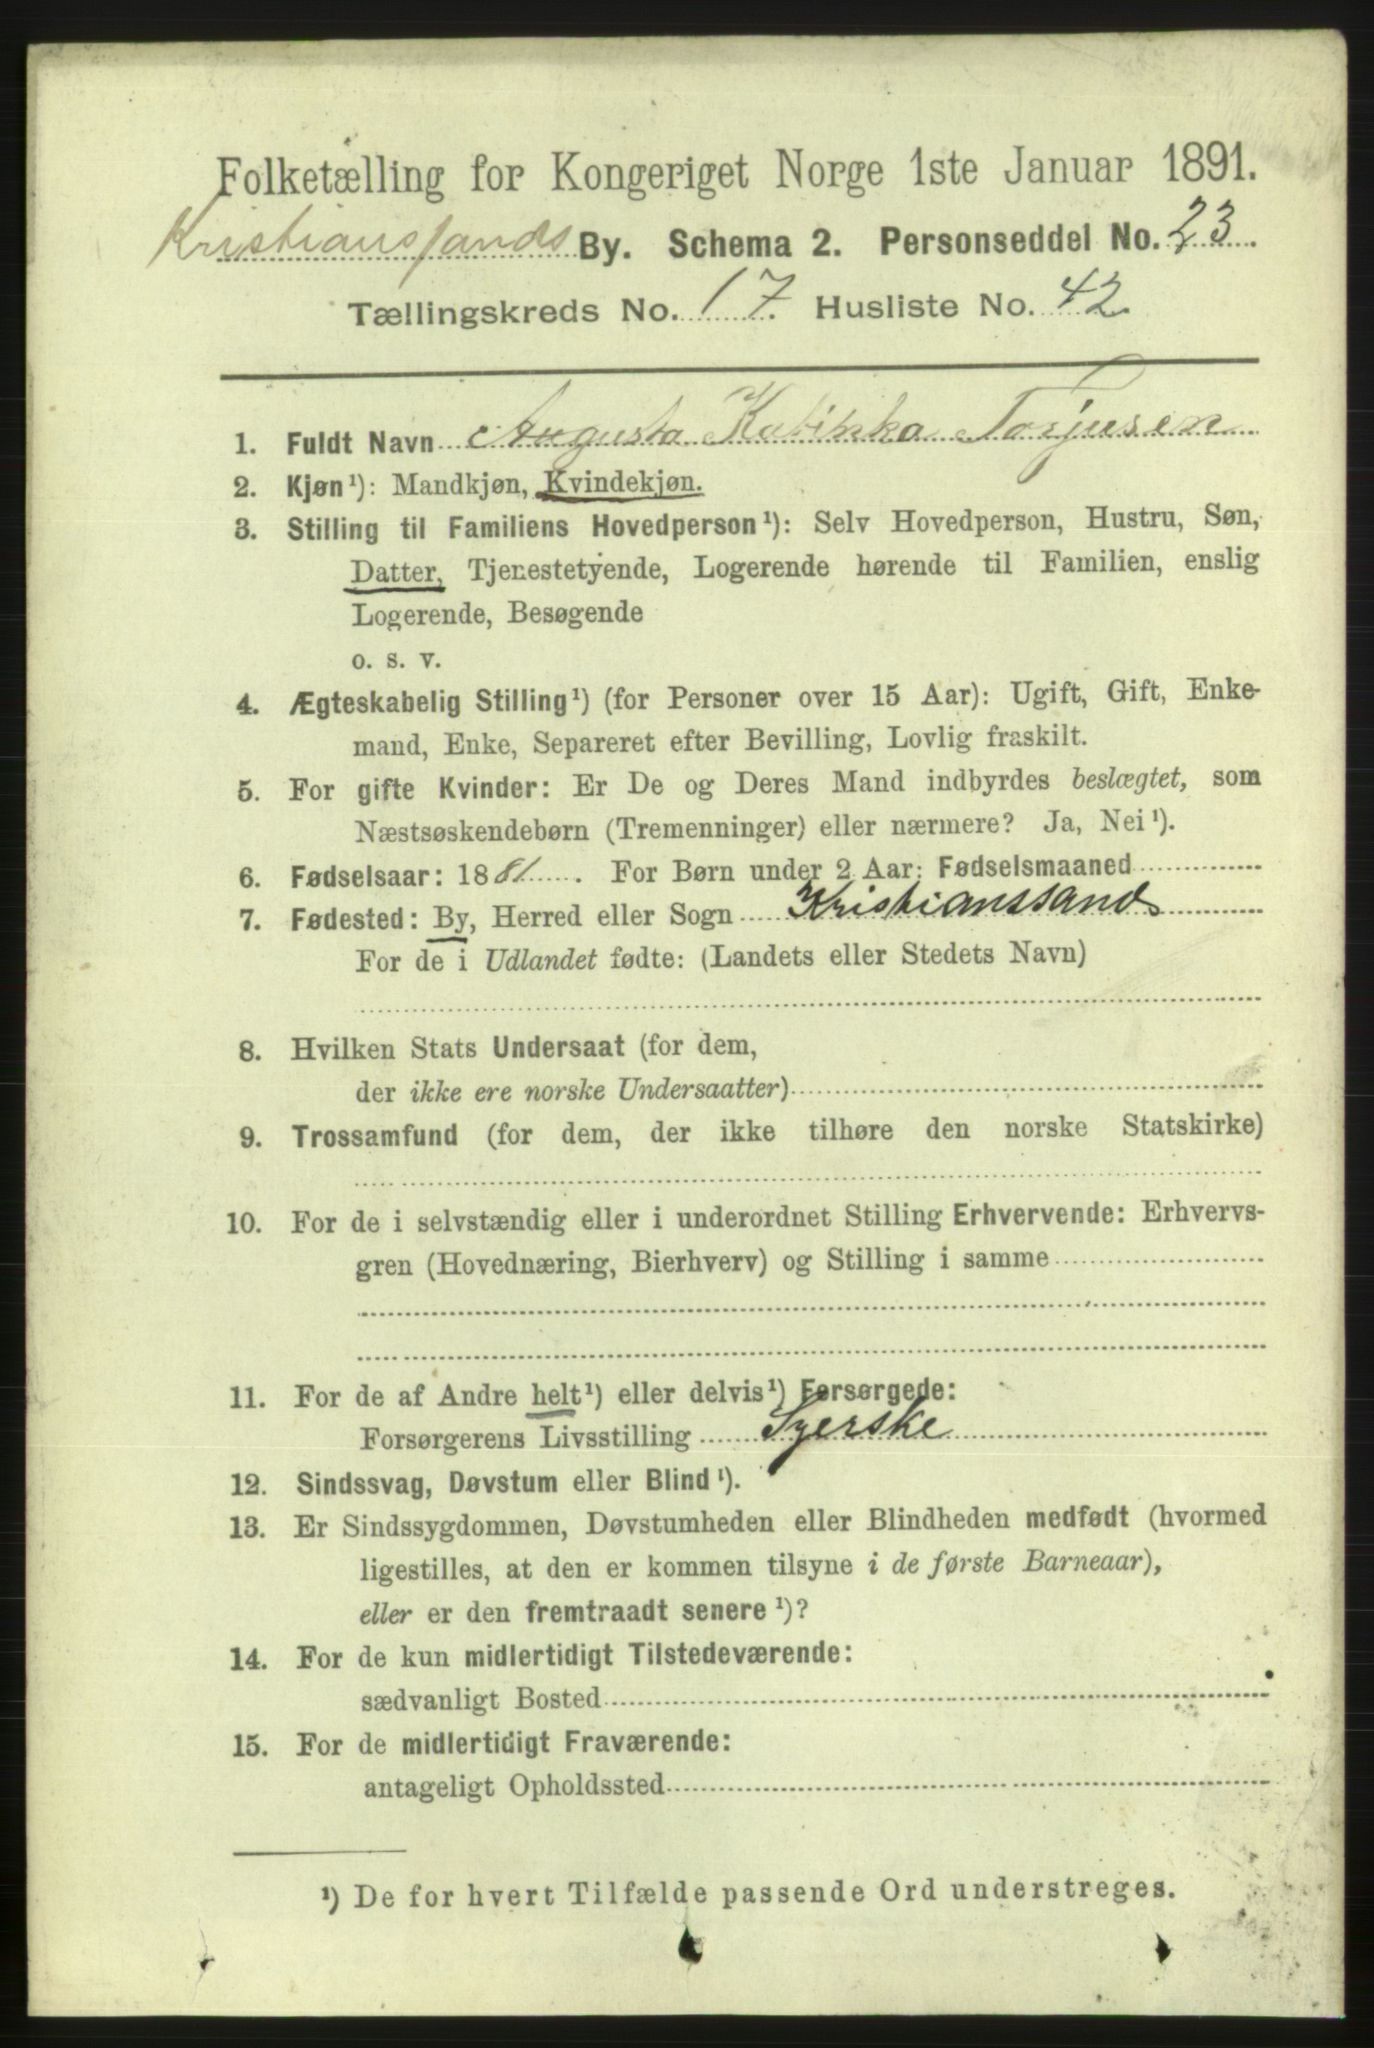 Folketælling for Kongeriget Norge 1ste Januar 1891.
Kristianssands By. Schema 2. Personseddel No. 23.
Tællingskreds No. 17. Husliste No. 42.
1. Fuldt Navn Augusta Katinka Torjusen
2. Kjøn¹): Mandkjøn, Kvindekjøn.
3. Stilling til Familiens Hovedperson¹): Selv Hovedperson, Hustru, Søn,
Datter, Tjenestetyende, Logerende hørende til Familien, enslig
Logerende, Besøgende
o. s. v.
4. Ægteskabelig Stilling¹) (for Personer over 15 Aar): Ugift, Gift, Enke-
mand, Enke, Separeret efter Bevilling, Lovlig fraskilt.
5. For gifte Kvinder: Er De og Deres Mand indbyrdes beslægtet, som
Næstsøskendebørn (Tremenninger) eller nærmere? Ja, Nei¹).
6. Fødselsaar: 1881. For Børn under 2 Aar: Fødselsmaaned
7. Fødested: By, Herred eller Sogn Kristianssand
For de i Udlandet fødte: (Landets eller Stedets Navn)
8. Hvilken Stats Undersaat (for dem,
der ikke ere norske Undersaatter)
9. Trossamfund (for dem, der ikke tilhøre den norske Statskirke)
10. For de i selvstændig eller i underordnet Stilling Erhvervende: Erhvervs-
gren (Hovednæring, Bierhverv) og Stilling i samme
11. For de af Andre helt¹) eller delvis¹) Forsørgede:
Forsørgerens Livsstilling Syerske
12. Sindssvag, Døvstum eller Blind¹).
13. Er Sindssygdommen, Døvstumheden eller Blindheden medfødt (hvormed
ligestilles, at den er kommen tilsyne i de første Barneaar),
eller er den fremtraadt senere¹)?
14. For de kun midlertidigt Tilstedeværende:
sædvanligt Bosted
15. For de midlertidigt Fraværende:
antageligt Opholdssted
¹) De for hvert Tilfælde passende Ord understreges.